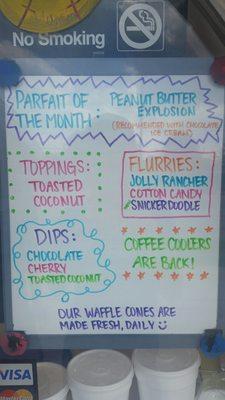 No Smoking
PARFAIT OF
THE MONTH
PEANUT BUTTER
EXPLOSION
(RECOMMENDED WITH CHOCOLATE
ICE CREAM)
TOPPINGS:
TOASTED
COCONUT
FLURRIES:
JOLLY RANCHER
COTTON CANDY
SNICKERDOODLE
DIPS:
CHOCOLATE
CHERRY
TOASTED COCONUT
COFFEE COOLERS
ARE BACK!
OUR WAFFLE CONES ARE
MADE FRESH, DAILY
VISA